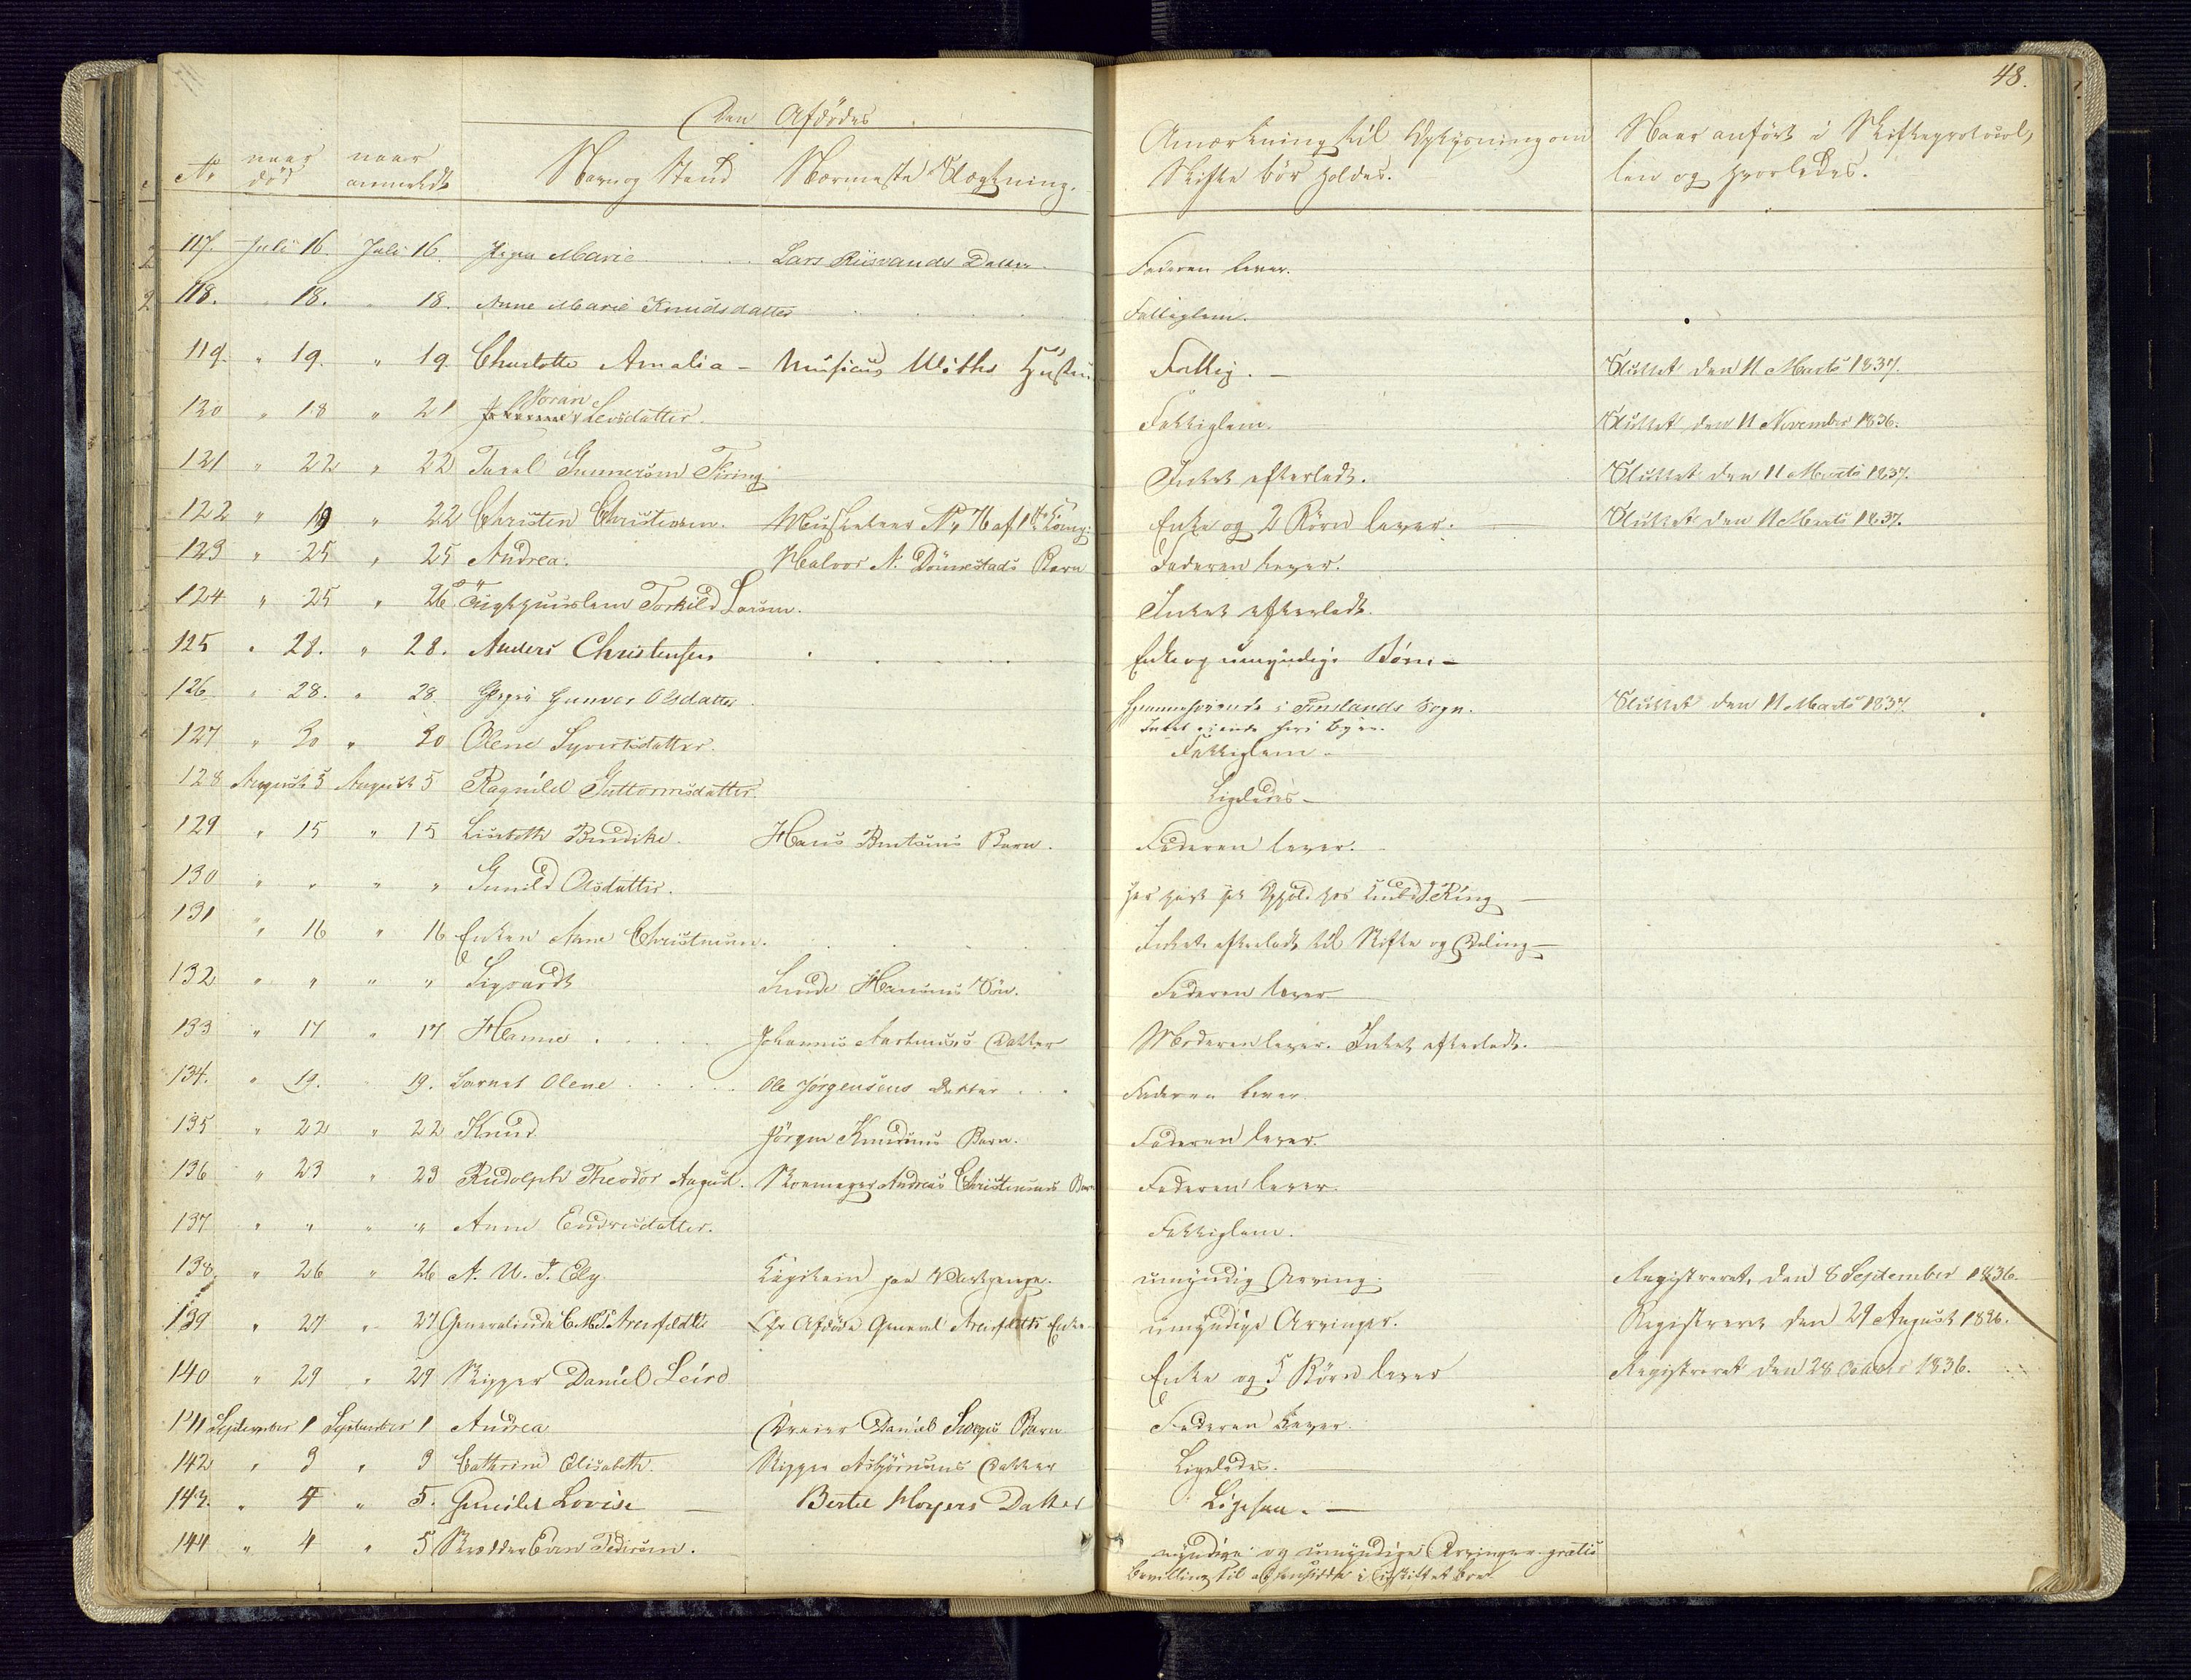 48.
Den Afdödes
No naar död naar anmeldt Navn og Stand Nærmeste Slægtning. Anmærkning til Oplysning om Skifte bør holdes. Naar anført i Skifteprotocollen og hvorledes.
117. Juli 16. Juli 16. Marie Lars Riisvands Datter. Faderen lever.
118. " 18. " 18. Anne Marie Knudsdatter Fattiglem.
119. " 19. " 19. Charlotte Amalia - Musicus Withs Hustru Fattig. - Sluttet den 11 Marts 1837.
120 " 18 " 21 Joran Levsdatter. Fattiglem. Sluttet den 11 November 1836.
121 " 22 " 22 Taral Gunnersen Tiring Intet efterladt. Sluttet den 11 Marts 1837.
122 " 19 " 22 Christen Christensen. Musketeer No 76 af 1ste Comp: Enke og 2 Börn lever. Sluttet den 11 Marts 1837.
123 " 25 " 25 Andrea. Halvor N. Dönnestads Barn Faderen lever.
124 " 25 " 26 Tugthuuslem Torkild Larsen. Intet efterladt.
125 " 28. " 28. Anders Christensen Enke og umyndige Börn -
126 " 28. " 28 Gunver Olsdatter Hjemmehørende i Finslands Sogn. Sluttet den 11 Marts 1837.
Intet eiende her i Byen.
127 " 30 " 30 Olene Syvertsdatter. Fattiglem -
128 August 5 August 5 Ragnild Guttormsdatter. Ligeledes -
129 " 15 " 15 Lisebeth Bendikte. Hans Bentsens Barn. Faderen lever.
130 " " " " Gunild Olsdatter. har havt sit Ophold hos Ring
131 " 16 " 16 Enken Anne Christensen. Intet efterladt til Skifte og Deling -
132 " " " " Sigvardt Hansens Sön. Faderen lever
133 " 17 " 17 Hanne Johannes Aartensens Datter Moderen lever. Intet efterladt.
134. " 19. " 19. Barnet Olene Ole Jörgensens Datter Faderen lever.
135 " 22 " 22 Knud Jörgen Knudsens Barn. Faderen lever.
136 " 23 " 23 Rudolph Theodor August. Skomager Andreas Christensens Barn Faderen lever.
137 " " " " Anne Endresdatter. Fattiglem.
138. " 26 " 26 A. U. F. Ely Capitain paa Vartpenge. umyndig Arving. Registreret, den 8 September 1836.
139 " 27 " 27 Generalinde Arenfeldt Afdöde General Arenfeldts Enke umyndige Arvinger. Registreret den 29 August 1836.
140 " 29 " 29 Skipper Daniel Leird Enke og 5 Börn lever Registreret den 28 October 1836.
141 September 1 September 1 Andrea Dreier Daniel Barn Faderen lever.
142 " 3 " 3 Cathrine Elisabeth. Skipper Asbjörnsens Datter Ligeledes.
143. " 4 " 5. Gunild Lovise Bertel Hoyers Datter Ligesaa. -
144 " 4 " 5 Skrædder Even Pedersen. myndige og umyndige Arvinger. gratis
bevilling til at hensidde i uskiftet boe